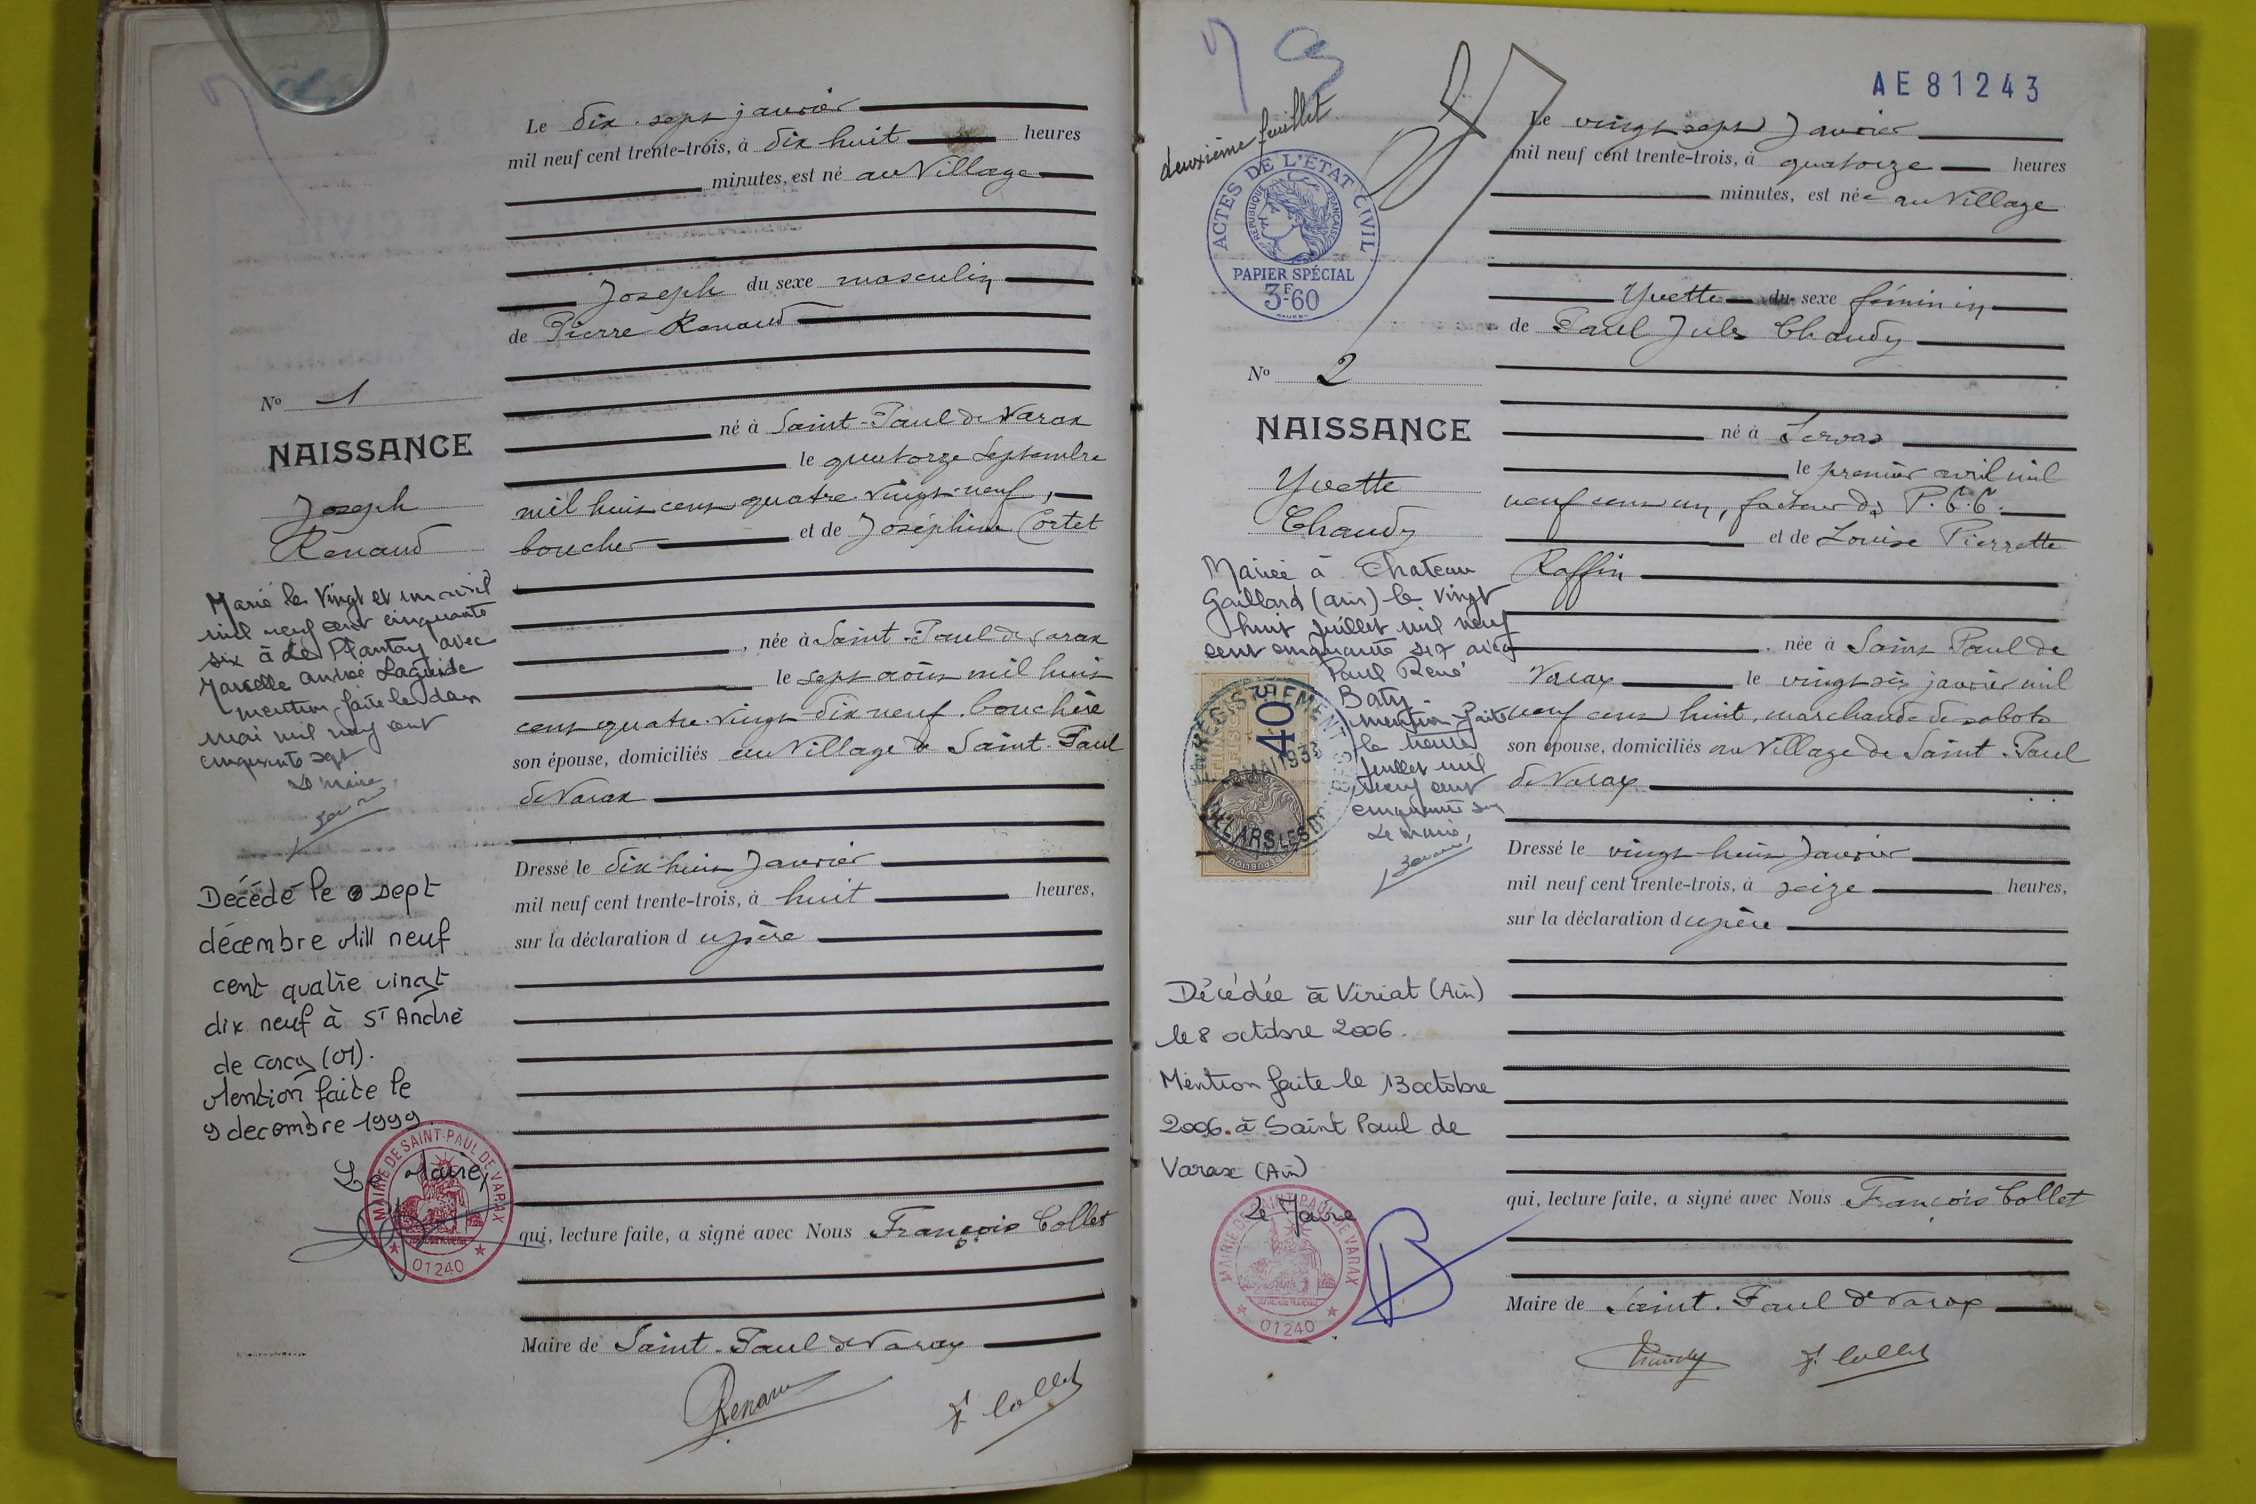 Le dix-sept janvier
mil neuf cent trente-trois, à dix huit heures
minutes, est né au Village
Joseph du sexe masculin
de Pierre Renaud
né à Saint-Paul de Varax
le quatorze Septembre
mil huit cent quatre-vingt-neuf,
boucher et de Joséphine Cortet
, née à Saint-Paul de Varax
le sept août mil huit
cent quatre-vingt-dix neuf, bouchère
son épouse, domiciliés au Village de Saint-Paul
de Varax
Dressé le dix huit Janvier
mil neuf cent trente-trois, à huit heures,
sur la déclaration du père
qui, lecture faite, a signé avec Nous François Collet
Maire de Saint-Paul de Varax
Renaud
F. Collet
No 1
NAISSANCE
Joseph
Renaud
Marié le vingt et un avril
mil neuf cent cinquante
six à Le Plantay avec
Marcelle Andrée
mention faite le
mai mil neuf cent
cinquante sept
Le maire,
Décédé le sept
décembre Mill neuf
cent quatre vingt
dix neuf à St André
de Corcy (01).
Mention faite le
9 decembre 1999.
Le Maire,
MAIRIE DE SAINT-PAUL DE VARAX
01240
AE81243
deuxième feuillet
ACTES DE L'ÉTAT CIVIL
RÉPUBLIQUE FRANÇAISE
PAPIER SPÉCIAL
3F60
Le vingt sept Janvier
mil neuf cent trente-trois, à quatorze heures
minutes, est née au Village
Yvette du sexe féminin
de Paul Jules Chaudy
né à Servas
le premier avril mil
neuf cent un, facteur des P.T.T.
et de Louise Pierrette
Roffin
, née à Saint Paul de
Varax le vingt six janvier mil
neuf cent huit, marchande de sabots
son épouse, domiciliés au Village de Saint-Paul
de Varax
Dressé le vingt-huit Janvier
mil neuf cent trente-trois, à seize heures,
sur la déclaration du père
qui, lecture faite, a signé avec Nous François Collet
Maire de Saint-Paul de Varax
Chaudy
F. Collet
No 2
NAISSANCE
Yvette
Chaudy
Mariée à Chateau
Gaillard (ain) le vingt
huit juillet mil neuf
cent cinquante six avec
Paul René
Baty
mention faite
le trente
juillet mil
neuf cent
cinquante six
Le maire,
ENREGISTREMENT
40
MAI 1933
VILLARS LES D
Décédée à Viriat (Ain)
le 8 octobre 2006.
Mention faite le 13 octobre
2006. à Saint Paul de
Varax (Ain)
Le Maire
MAIRIE DE SAINT-PAUL DE VARAX
01240